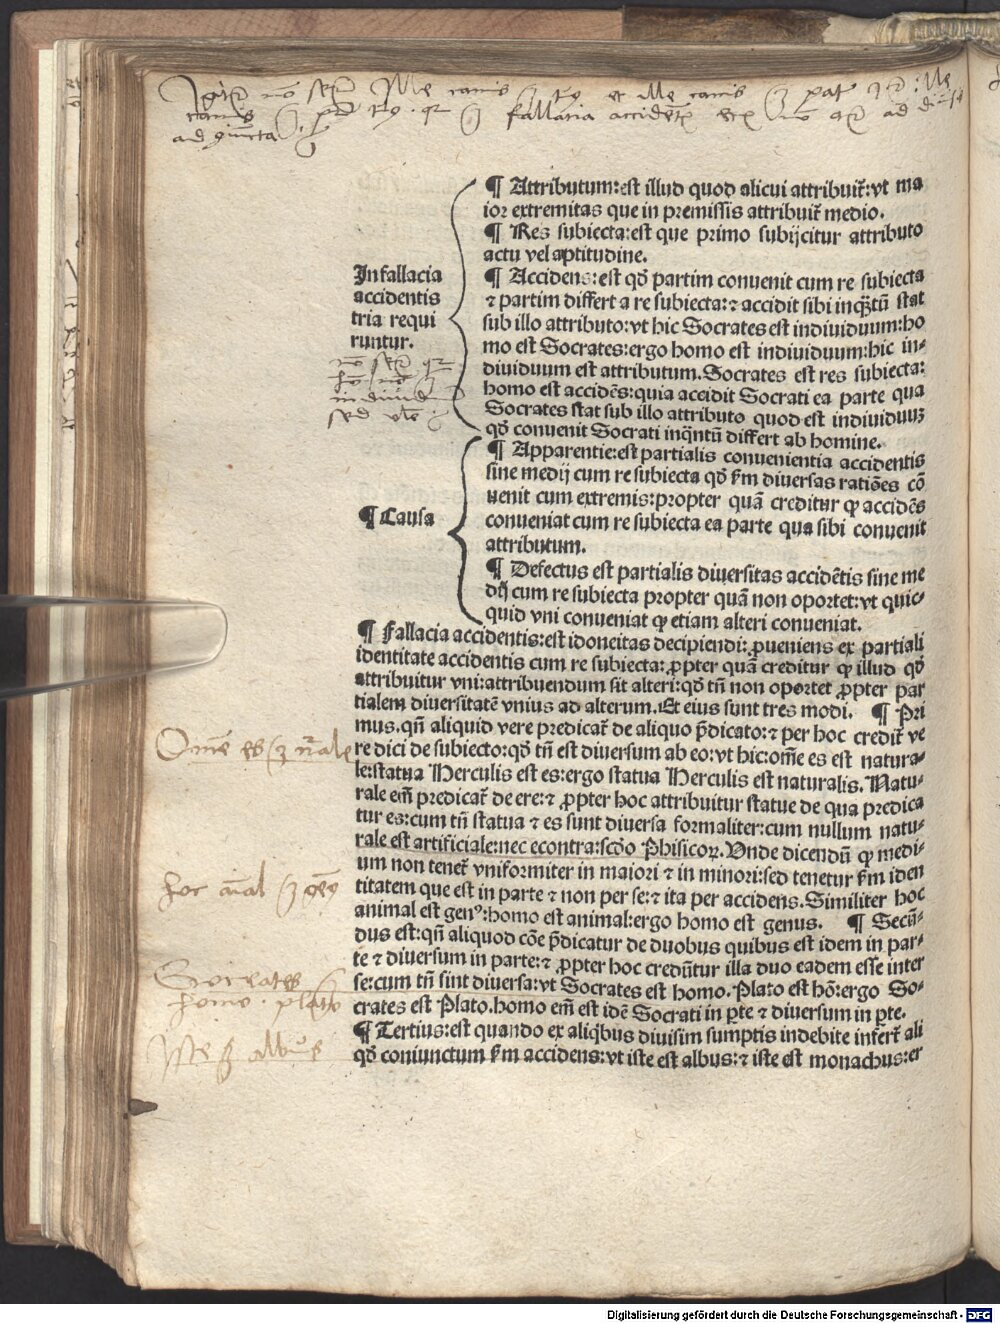 ¶ Attributum:est illud quod alicui attribuit̃:vt ma
ior extremitas que in premissis attribuit̃ medio.
¶ Res subiecta:est que primo subijcitur attributo
actu vel aptitudine.
In fallacia
accidentis
tria requi
runtur.
¶ Accidens:est qḋ partim conuenit cum re subiecta
⁊ partim differt a re subiecta:⁊ accidit sibi inq̃tũ stat
sub illo attributo:vt hic Socrates est indiuiduum:ho
mo est Socrates:ergo homo est indiuiduum:hic in-
diuiduum est attributum. Socrates est res subiecta:
homo est accidẽs:quia accidit Socrati ea parte qua
Socrates stat sub illo attributo quod est indiuiduuʒ
qḋ conuenit Socrati inq̃ntũ differt ab homine.
¶ Causa
¶ Apparentie:est partialis conuenientia accidentis
sine medij cum re subiecta qḋ ẜm diuersas ratiões cõ
uenit cum extremis:propter quã creditur ꝙ accidẽs
conueniat cum re subiecta ea parte qua sibi conuenit
attributum.
¶ Defectus est partialis diuersitas accidẽtis siue me
dij cum re subiecta propter quã non oportet:vt quic-
quid vni conueniat ꝙ etiam alteri conueniat.
¶ Fallacia accidentis:est idoneitas decipiendi:ꝓueniens ex partiali
identitate accidentis cum re subiecta:ꝓpter quã creditur ꝙ illud qḋ
attribuitur vni:attribuendum sit alteri:qḋ tñ non oportet ꝓpter par
tialem diuersitatẽ vnius ad alterum. Et eius sunt tres modi. ¶ Pri
mus.qñ aliquid vere predicat̃ de aliquo p̃dicato:⁊ per hoc credit̃ ve
re dici de subiecto:qḋ tñ est diuersum ab eo:vt hic:om̃e es est natura-
le:statua Herculis est es:ergo statua Herculis est naturalis. Natu-
rale em̃ predicat̃ de ere:⁊ ꝓpter hoc attribuitur statue de qua predica
tur es:cum tñ statua ⁊ es sunt diuersa formaliter:cum nullum natu-
rale est artificiale:nec econtra:scḋo Phisicoꝝ. Vnde dicendũ ꝙ medi-
um non tenet̃ vniformiter in maiori ⁊ in minori:sed tenetur ẜm iden
titatem que est in parte ⁊ non per se:⁊ ita per accidens. Similiter hoc
animal est genꝰ:homo est animal:ergo homo est genus. ¶ Secũ-
dus est:qñ aliquod cõe p̃dicatur de duobus quibus est idem in par-
te ⁊ diuersum in parte:⁊ ꝓpter hoc credũtur illa duo eadem esse inter
se:cum tñ sint diuersa:vt Socrates est homo. Plato est hõ:ergo So-
crates est Plato.homo em̃ est idẽ Socrati in ꝑte ⁊ diuersum in ꝑte.
¶ Tertius:est quando ex aliq̇bus diuisim sumptis indebite infert̃ ali
qḋ coniunctum ẜm accidens:vt iste est albus:⁊ iste est monachus:er
Socrates
homo . plato
Digitalisierung gefördert durch die Deutsche Forschungsgemeinschaft - DFG